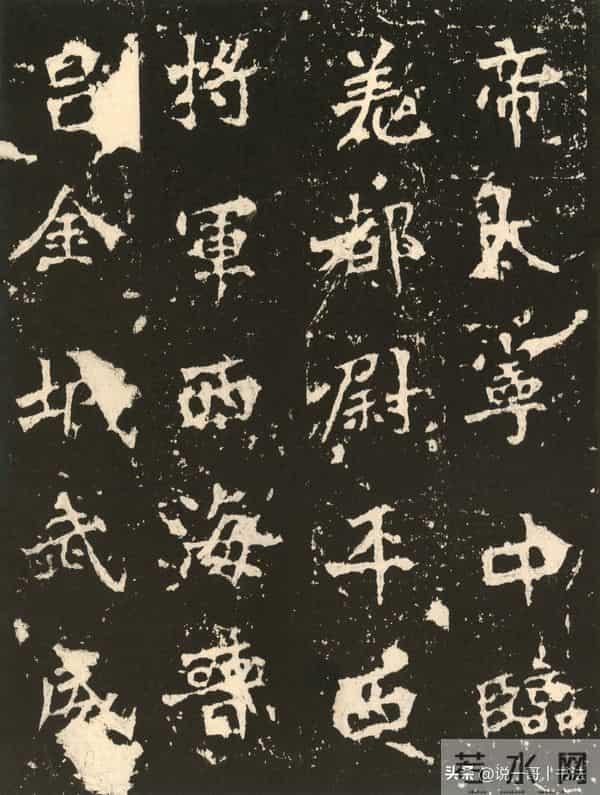 帝太寧中臨
羌都尉平西
將軍西海晉
昌金城武威
若水网
头条 @说一哥